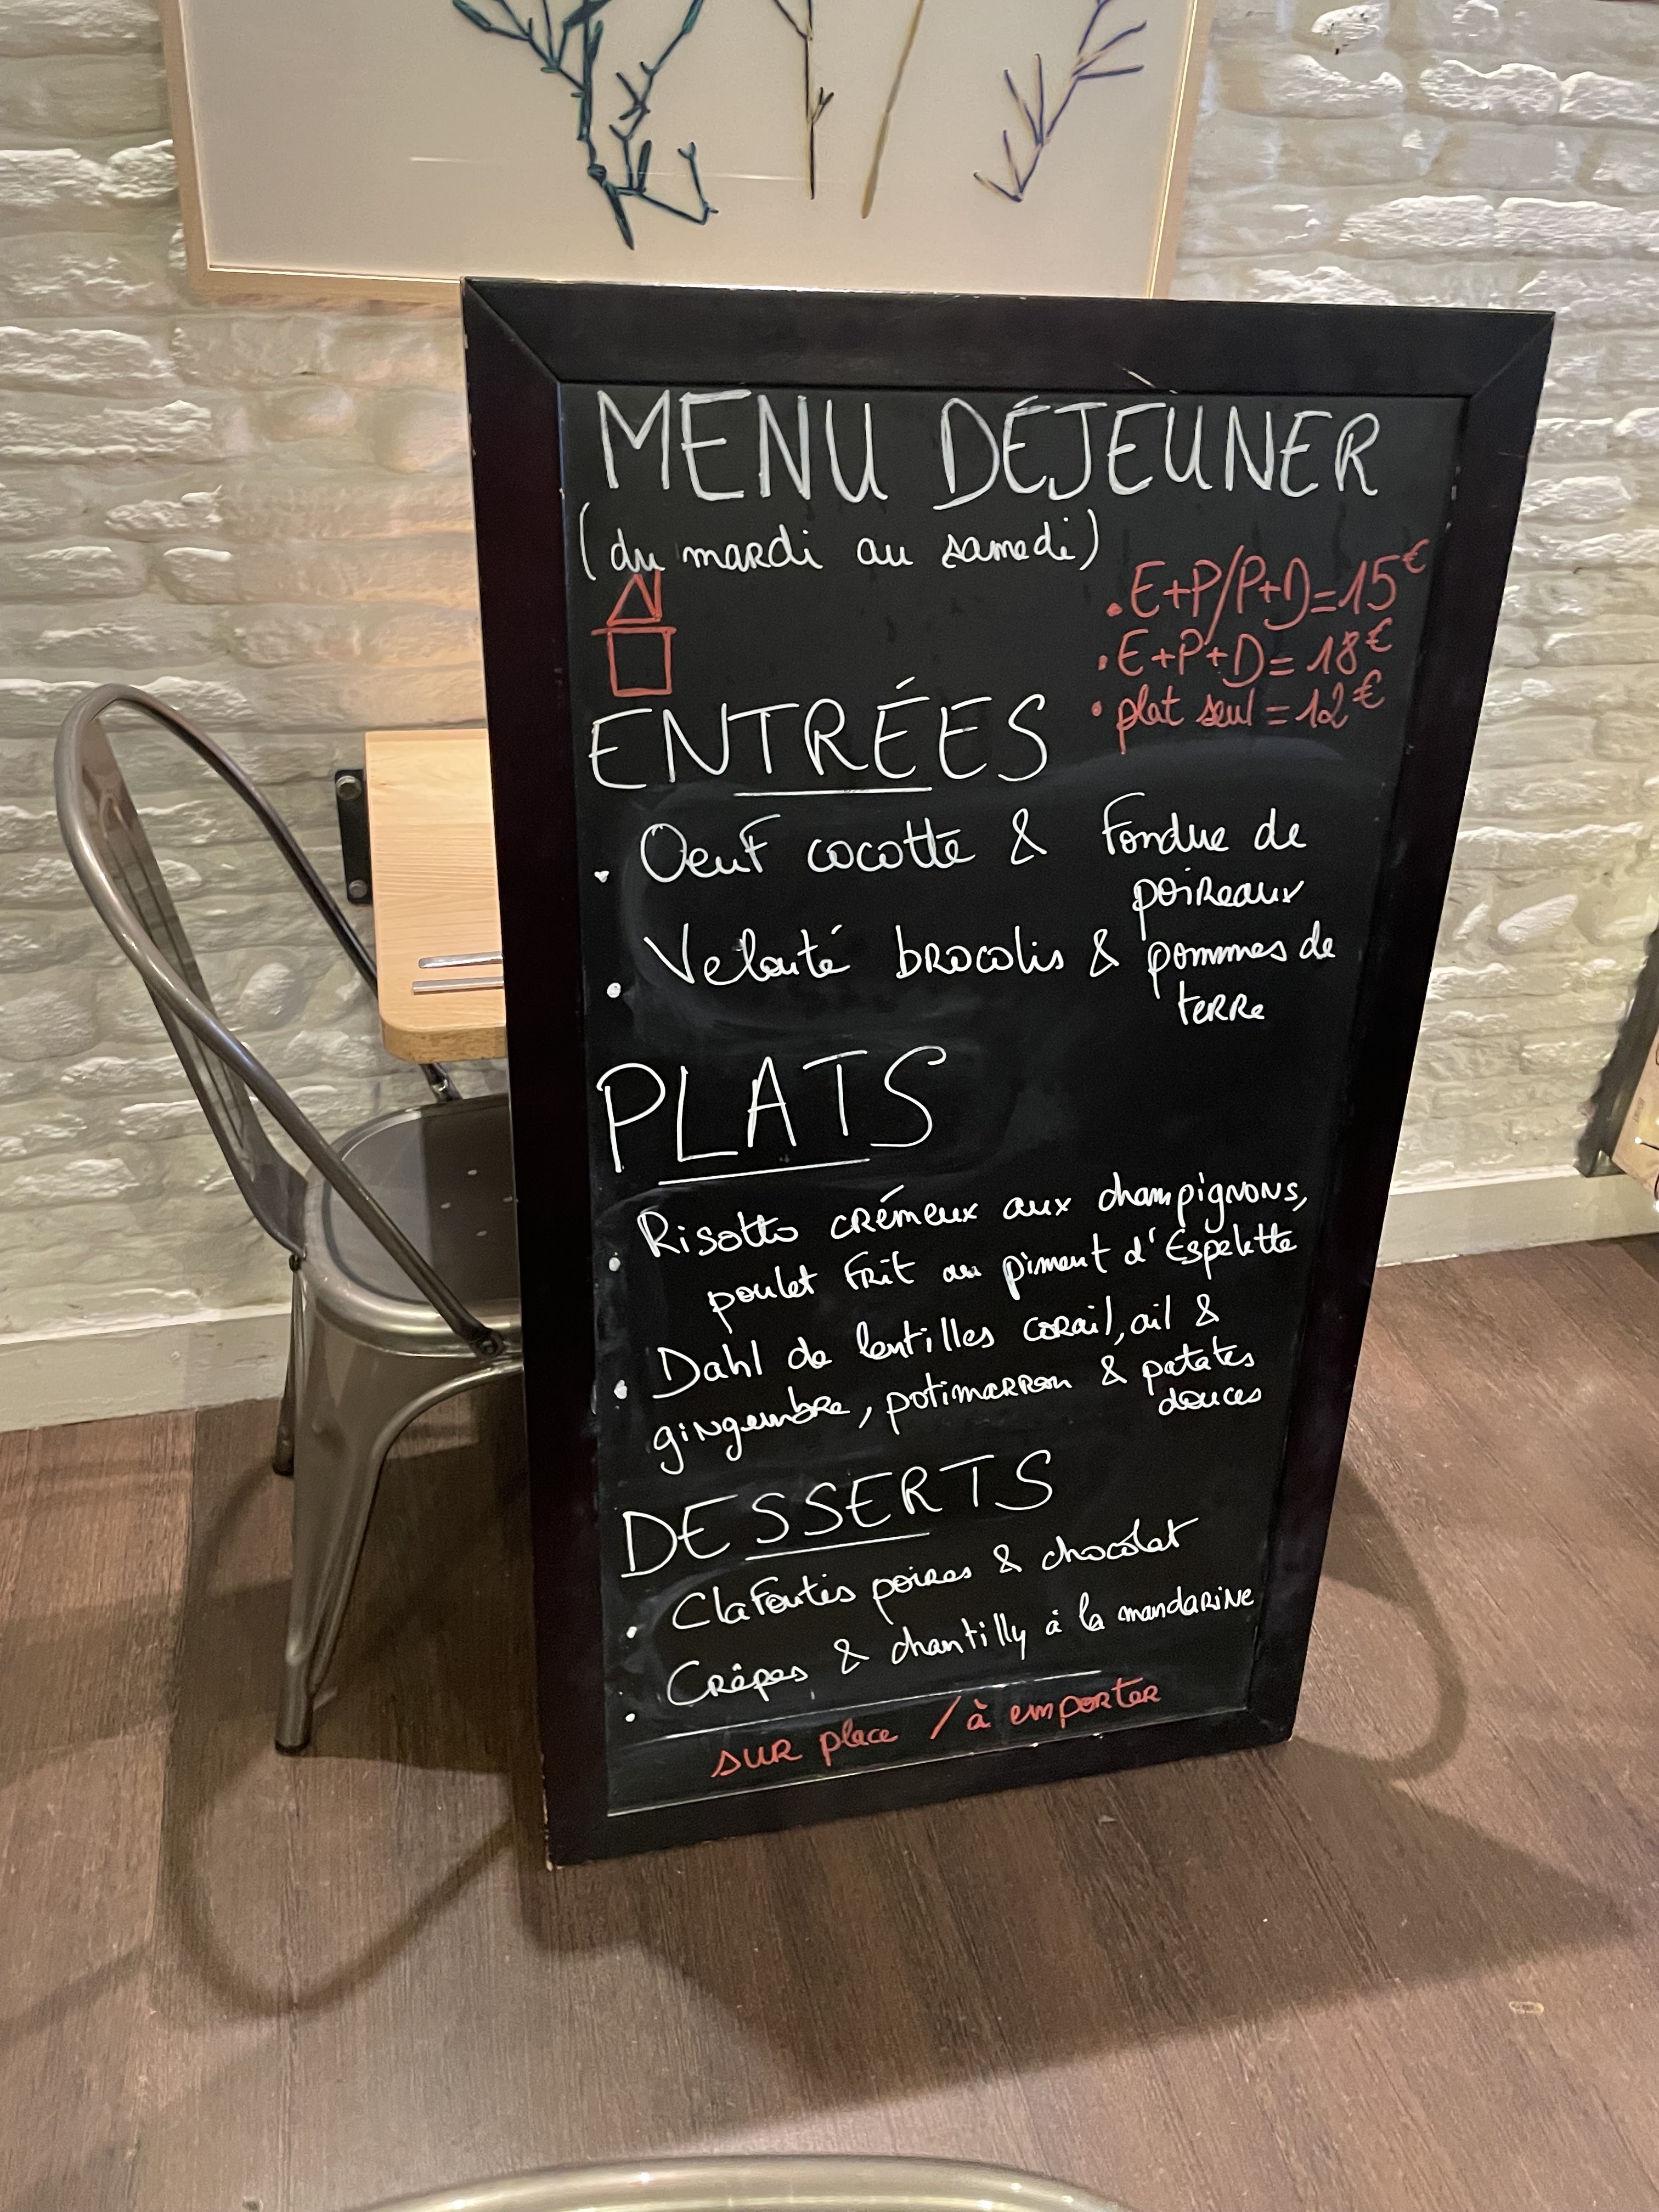 MENU DÉJEUNER
(du mardi au samedi)
• E+P/P+D=15€
• E+P+D=18€
• plat seul=12€
ENTRÉES
• Oeuf cocotte & fondue de
poireaux
• Velouté brocolis & pommes de
terre
PLATS
• Risotto crémeux aux champignons,
poulet frit au piment d'Espelette
• Dahl de lentilles corail, ail &
gingembre, potimarron & patates
douces
DESSERTS
• Clafoutis poires & chocolat
• Crêpes & chantilly à la mandarine
sur place / à emporter